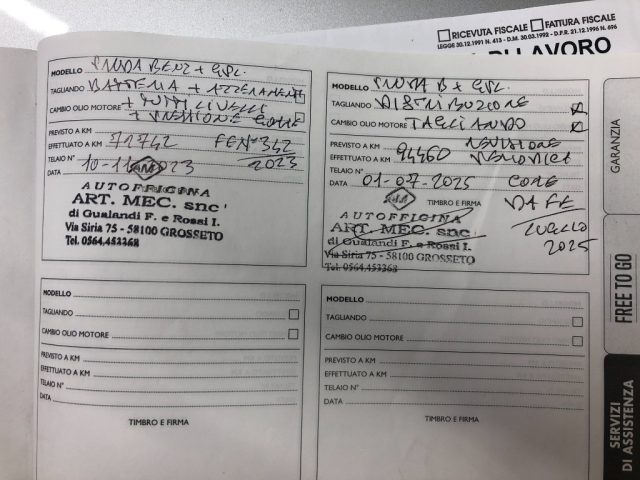 RICEVUTA FISCALE FATTURA FISCALE
LEGGE 30.12.1991 N. 413 - D.M. 30.03.1992 - D.P.R. 21.12.1996 N. 696
DI LAVORO
MODELLO PANDA BENZ + GPL.
TAGLIANDO BATTERIA + AZZERAMENTO
CAMBIO OLIO MOTORE + TUTTI LIVELLI
+ PRESSIONE GOMME
PREVISTO A KM
EFFETTUATO A KM 71742 FE N° 342
TELAIO N° 2023
DATA 10-11-2023
AM
AUTOFFICINA
ART. MEC. snc
di Gualandi F. e Rossi I.
Via Siria 75 - 58100 GROSSETO
Tel. 0564.453368
MODELLO PANDA B + GPL.
TAGLIANDO DISTRIBUZIONE
CAMBIO OLIO MOTORE TAGLIANDO
PREVISTO A KM REVISIONE
EFFETTUATO A KM 94460 PERIODICA
TELAIO N°
DATA 01-07-2025 COME
TIMBRO E FIRMA DA FE
LUGLIO
2025
AM
AUTOFFICINA
ART. MEC. snc
di Gualandi F. e Rossi I.
Via Siria 75 - 58100 GROSSETO
Tel. 0564.453368
MODELLO
TAGLIANDO
CAMBIO OLIO MOTORE
PREVISTO A KM
EFFETTUATO A KM
TELAIO N°
DATA
TIMBRO E FIRMA
MODELLO
TAGLIANDO
CAMBIO OLIO MOTORE
PREVISTO A KM
EFFETTUATO A KM
TELAIO N°
DATA
TIMBRO E FIRMA
GARANZIA
FREE TO GO
SERVIZI
DI ASSISTENZA